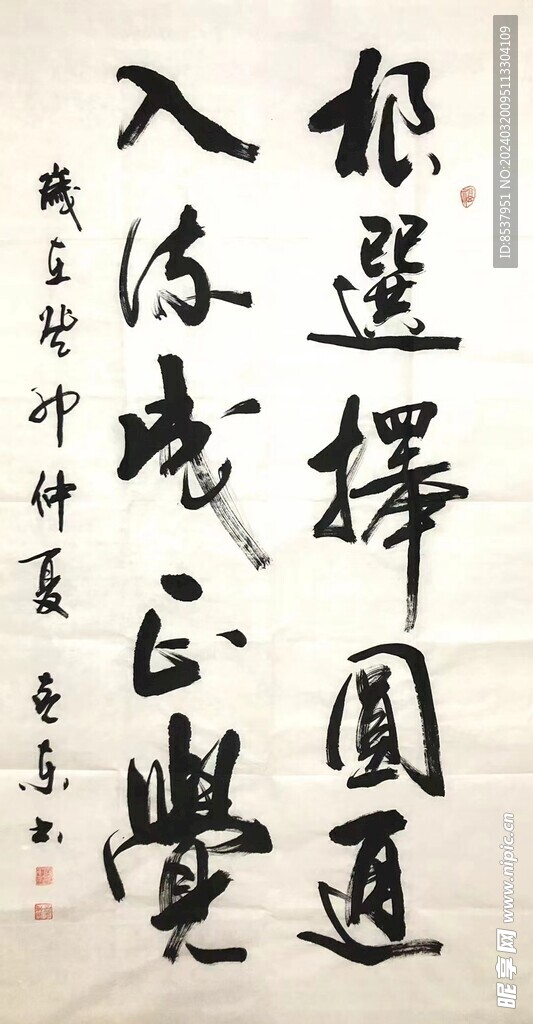 根選擇圓通
入流成正覺
歲在癸卯仲夏
东书
ID:8537951 NO:20240320095113304109
昵享网 www.nipic.cn